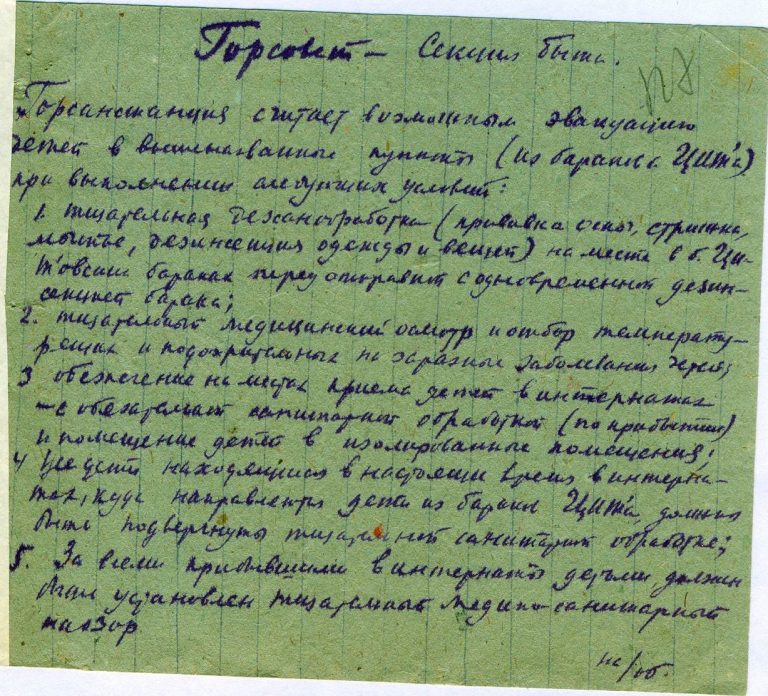 Горсовет – Секция быта.
№8
Горсанстанция считает возможным эвакуацию
детей в вышеназванные пункты (из барака ЦИТ'а)
при выполнении следующих условий:
1. тщательная дезсанобработка (прививка оспы, стрижка,
мытье, дезинсекция одежды и вещей) на месте в б. Ци-
т'овских бараках перед отправкой с одновременной дезин-
секцией барака;
2. тщательный медицинский осмотр и отбор температу-
рящих и подозрительных на заразные заболевания детей;
3 обеспечение на местах приема детей в интернатах
– с обязательной санитарной обработкой (по прибытии)
и помещение детей в изолированные помещения;
4 Все дети находящиеся в настоящи время в интерна-
тах, куда направлены дети из барака ЦИТ'а, должны
быть подвергнуты тщательной санитарной обработке;
5. За всеми прибывшими в интернаты детьми, должен
быть установлен тщательный медико-санитарный
надзор